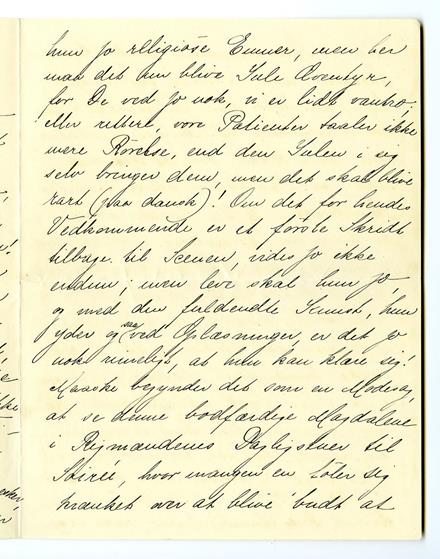 hun jo religiøse Emner, men her
maa det kun blive Jule Æventyr,
for De ved jo nok, vi er lidt vantro,
eller rettere, vore Patienter taaler ikke
mere Rørelse, end den Julen i sig
selv bringer dem, men det skal blive
rart (paa dansk)! Om det for hendes
Vedkommende er et første Skridt
tilbage til Scenen, vides jo ikke
endnu; men leve skal hun jo,
og med den fuldendte Kunst, hun
yder og saa ved Oplæsninger, er det jo
nok rimeligt, at hun kan klare sig!
Maaske begynder det som en Modesag,
at se denne bodfærdige Magdalene
i Rigmændenes Dagligstuer til
Soirée, hvor mangen en føler sig
krænket over at blive budt at